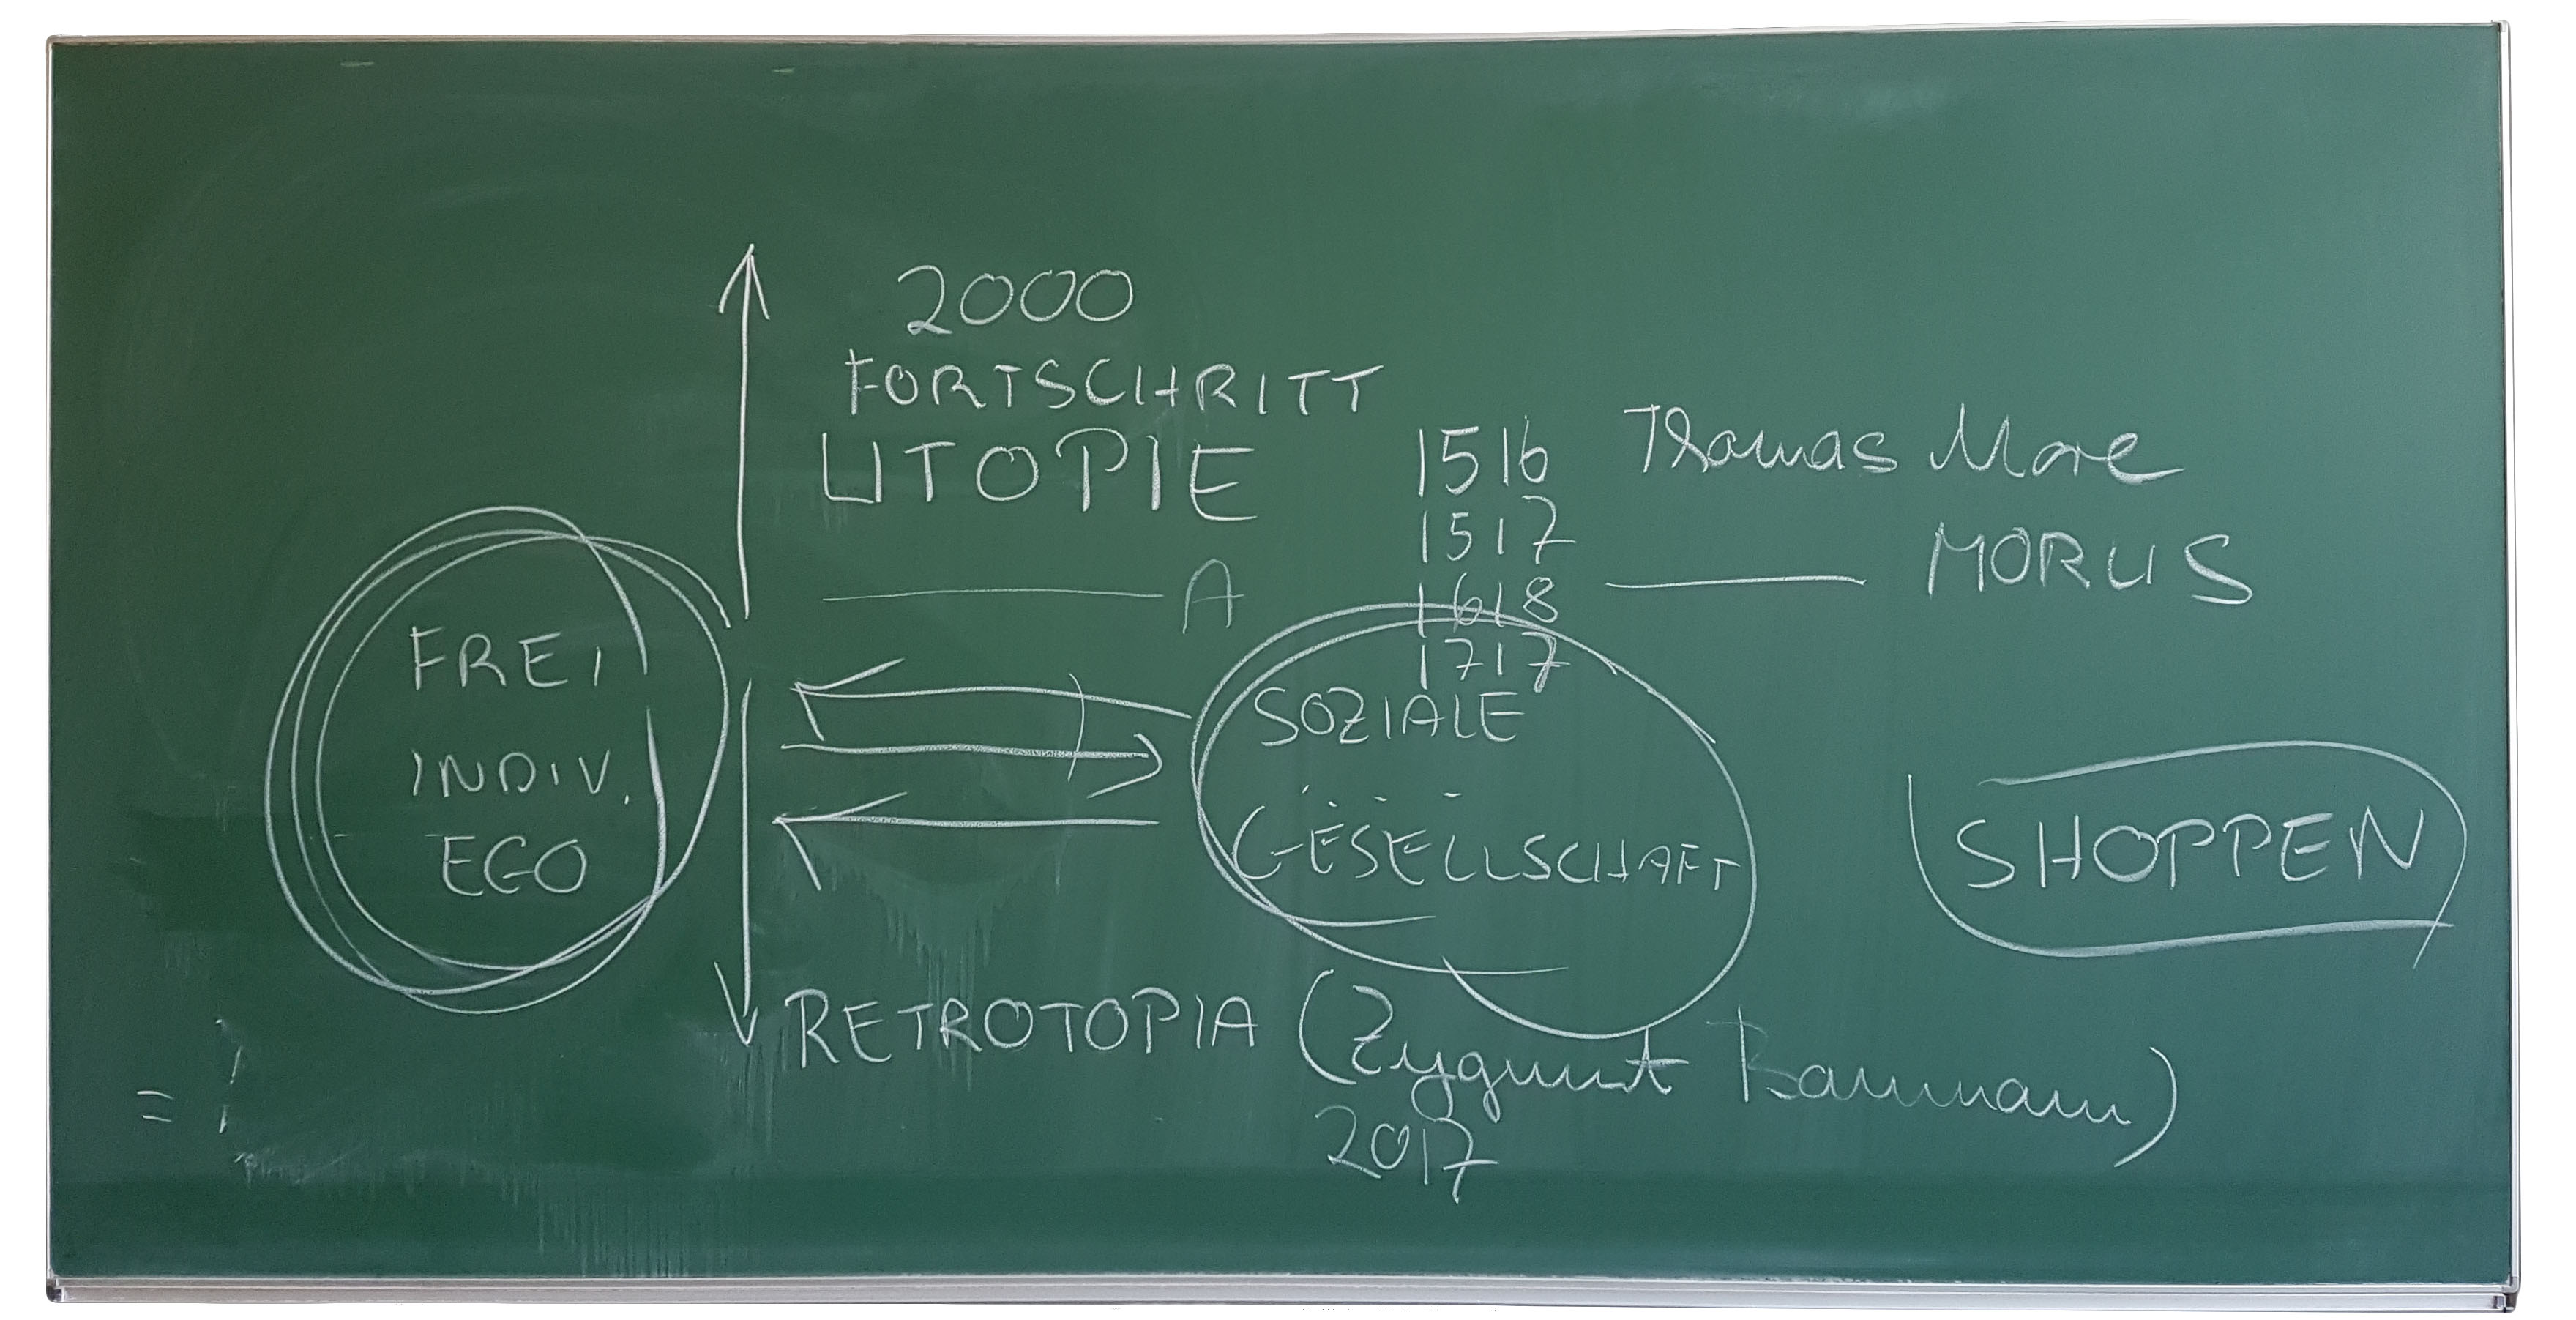 2000
FORTSCHRITT
UTOPIE
1516 Thomas More
1517
MORUS
A
1618
1717
FREI
INDIV.
EGO
SOZIALE
GESELLSCHAFT
SHOPPEN
RETROTOPIA (Zygmunt Baumann)
2017
=